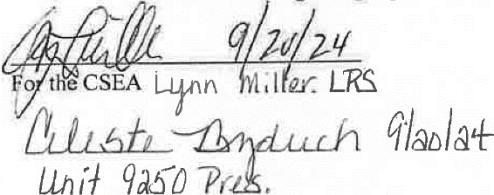 9/20/24
For the CSEA Lynn Miller. LRS
Celeste 9/20/24
Unit 9250 Pres.